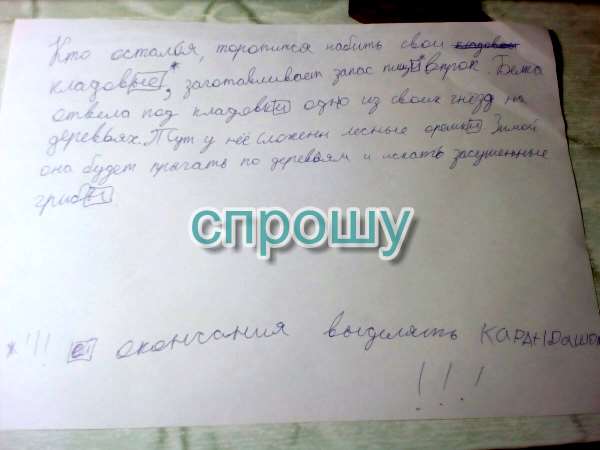 Кто остался, торопится набить свои кладовы
кладовые*, заготавливает запас пищи впрок. Белка
отвела под кладовки одно из своих гнёзд на
деревьях. Тут у неё сложены лесные орешки. Зимой
она будет прыгать по деревьям и искать засушенные
грибы.
спрошу
*!!! окончания выделять КАРАНДАШОМ
!!!